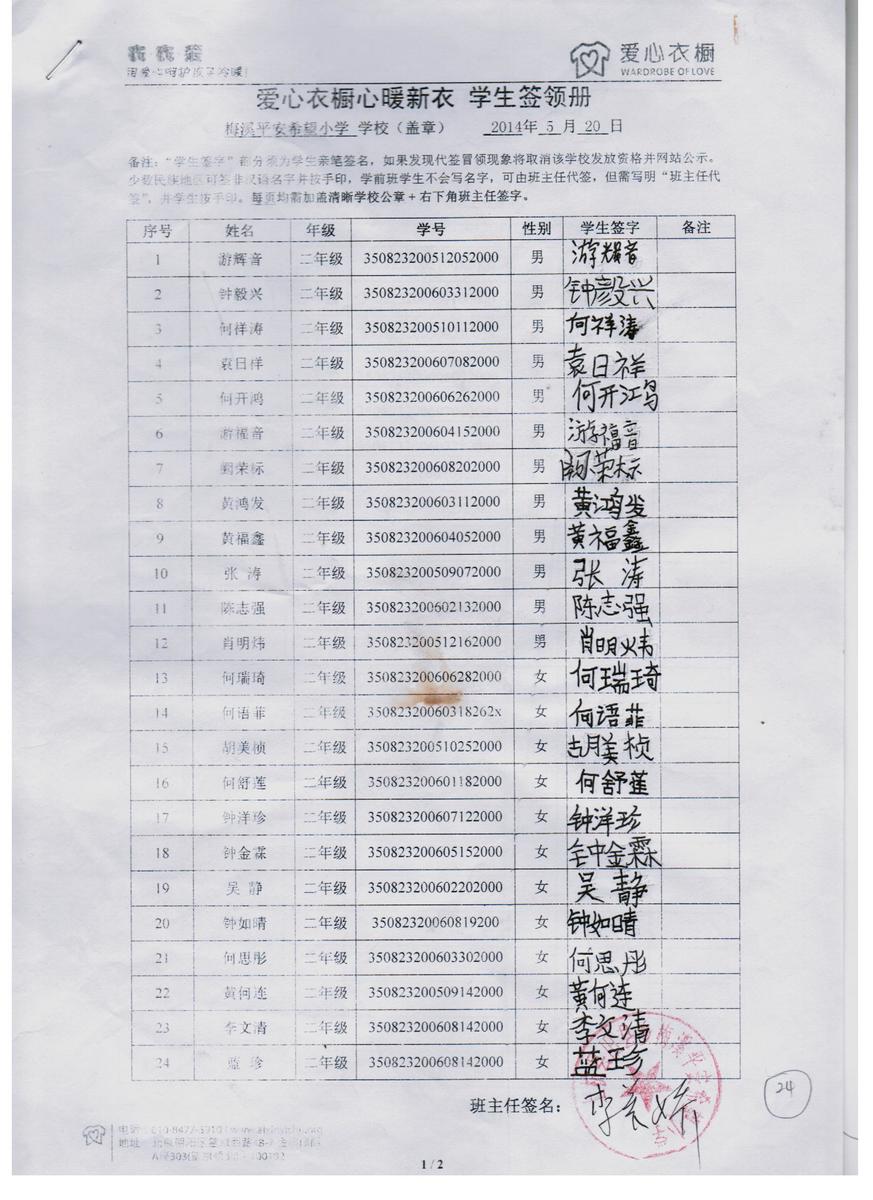 爱心衣橱
WARDROBE OF LOVE
爱心衣橱心暖新衣 学生签领册
梅溪平安希望小学 学校（盖章） 2014年 5 月 20 日
备注：“学生签字”部分须为学生亲笔签名，如果发现代签冒领现象将取消该学校发放资格并网站公示。
少数民族地区可签非汉语名字并按手印，学前班学生不会写名字，可由班主任代签，但需写明“班主任代
签”，并学生按手印。每页均需加盖清晰学校公章+右下角班主任签字。
序号 姓名 年级 学号 性别 学生签字 备注
1 游辉音 二年级 350823200512052000 男 游辉音
2 钟毅兴 二年级 350823200603312000 男 钟毅兴
3 何祥涛 二年级 350823200510112000 男 何祥涛
4 袁日样 二年级 350823200607082000 男 袁日祥
5 何开鸿 二年级 350823200606262000 男 何开鸿
6 游福音 二年级 350823200604152000 男 游福音
7 阙荣标 二年级 350823200608202000 男 阙荣标
8 黄鸿发 二年级 350823200603112000 男 黄鸿发
9 黄福鑫 二年级 350823200604052000 男 黄福鑫
10 张 涛 二年级 350823200509072000 男 张 涛
11 陈志强 二年级 350823200602132000 男 陈志强
12 肖明炜 二年级 350823200512162000 男 肖明炜
13 何瑞琦 二年级 350823200606282000 女 何瑞琦
14 何语菲 二年级 35082320060318262x 女 何语菲
15 胡美桢 二年级 350823200510252000 女 胡美桢
16 何舒莲 二年级 350823200601182000 女 何舒莲
17 钟洋珍 二年级 350823200607122000 女 钟洋珍
18 钟金霖 二年级 350823200605152000 女 钟金霖
19 吴 静 二年级 350823200602202000 女 吴 静
20 钟如晴 二年级 35082320060819200 女 钟如晴
21 何思彤 二年级 350823200603302000 女 何思彤
22 黄何连 二年级 350823200509142000 女 黄何连
23 李文清 二年级 350823200608142000 女 李文清
24 蓝 珍 二年级 350823200608142000 女 蓝珍
班主任签名：
24
1 / 2